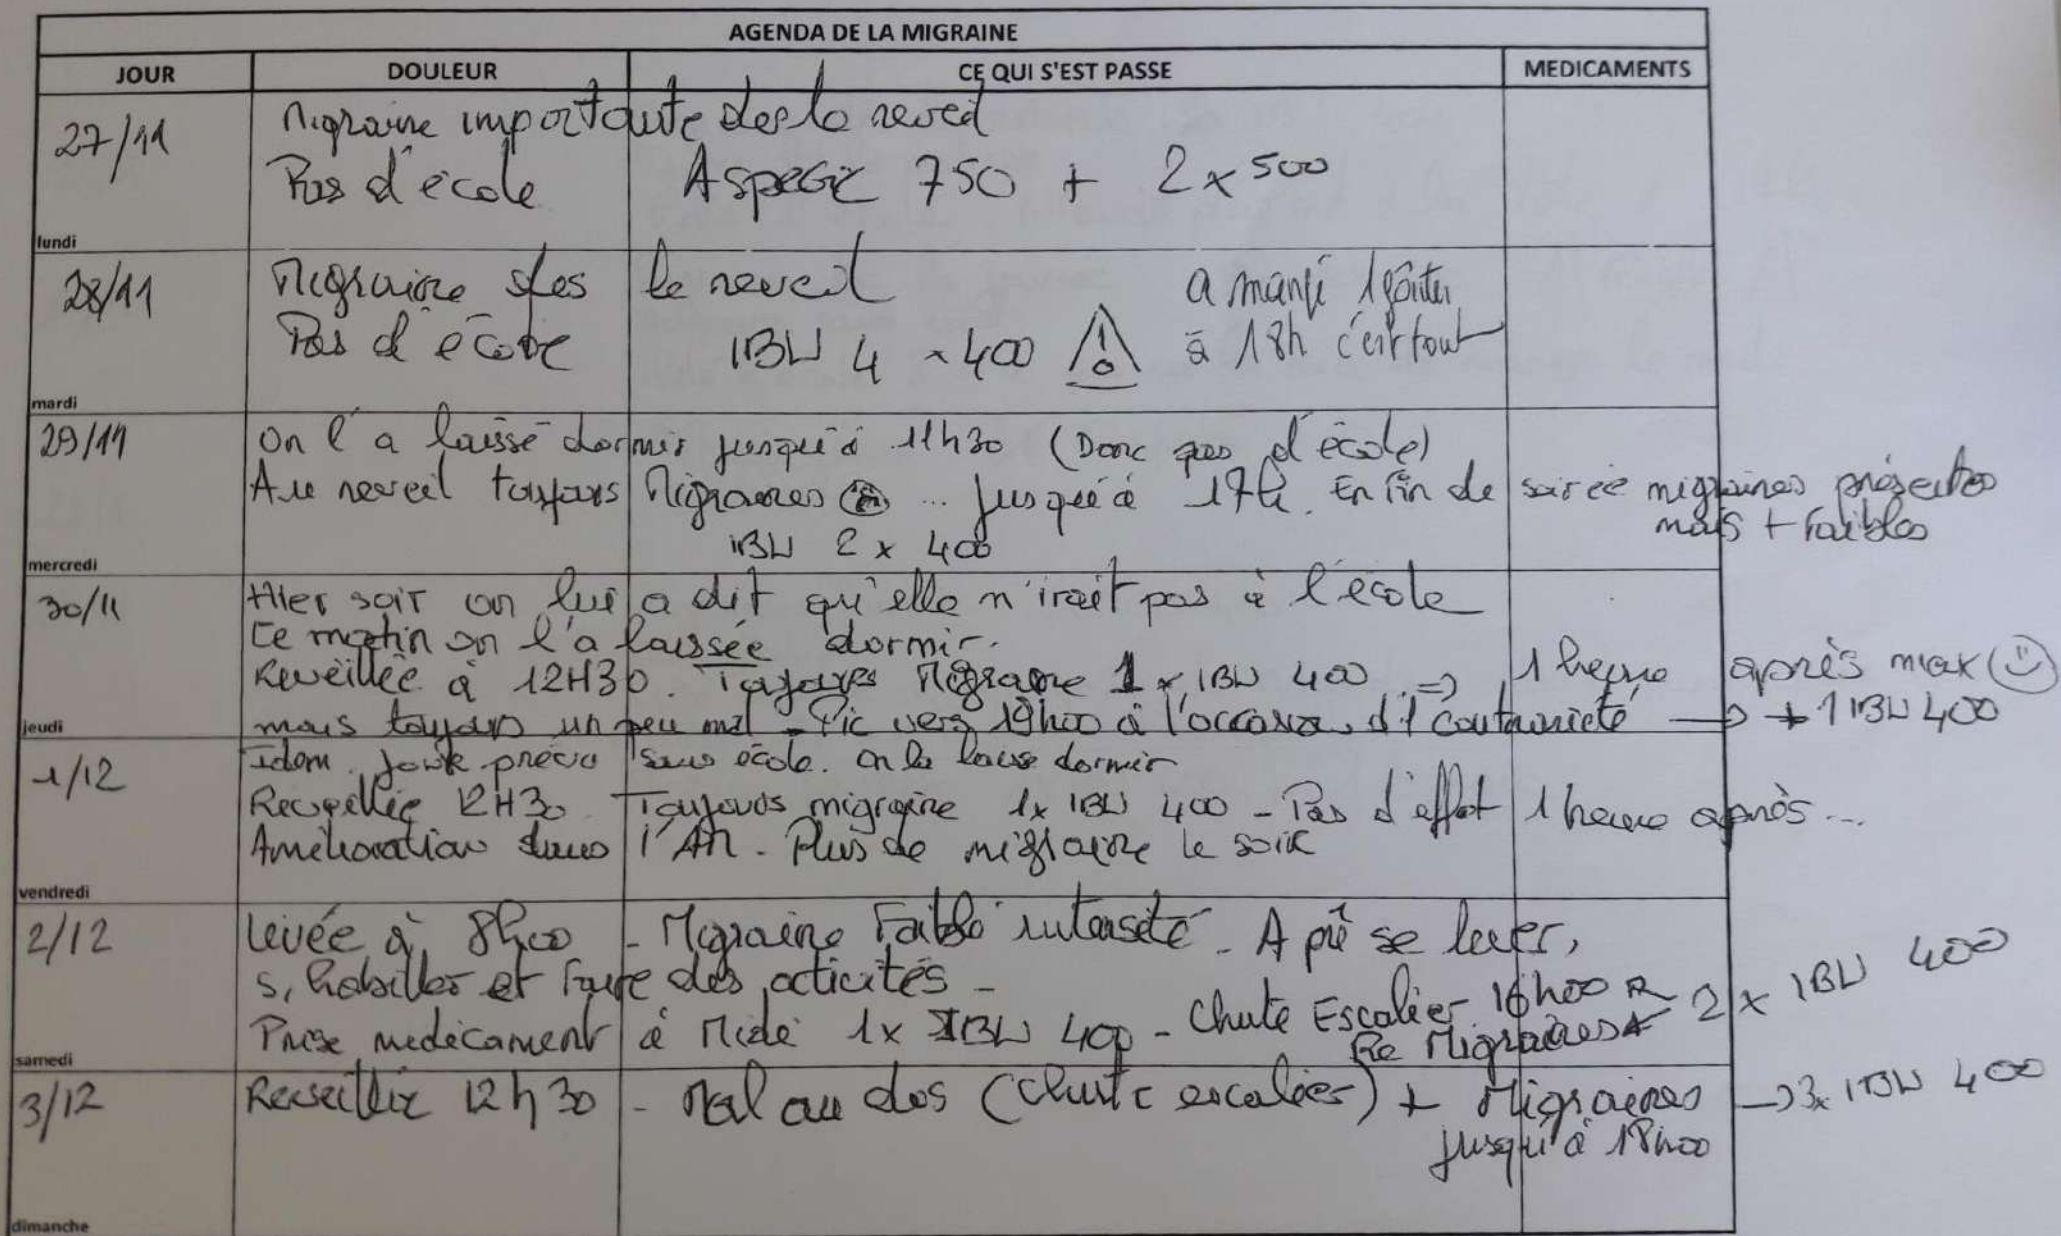 AGENDA DE LA MIGRAINE
JOUR DOULEUR CE QUI S'EST PASSE MEDICAMENTS
27/11 Migraine importante des le reveil
Pas d'école Aspegic 750 + 2 x 500
lundi
28/11 Migraine des le reveil a mangé 1 goûter
Pas d'école IBU 4 x 400 à 18h c'est tout
mardi
29/11 On l'a laissé dormir jusqu'à 11h30 (Donc pas d'école)
Au reveil toujours Migraines ... jusqu'à 17h. En fin de soirée migraines présentes
mais + Faibles
IBU 2 x 400
mercredi
30/11 Hier soir on lui a dit qu'elle n'irait pas à l'école
Ce matin on l'a laissée dormir.
Reveillée à 12H30. Toujours Migraine 1 x IBU 400 => 1 heure après max
mais toujours un peu mal - Pic vers 19h00 à l'occasion d'1 contrariété -> + 1 IBU 400
jeudi
1/12 Idem. Jour prévu sans école. On la laisse dormir
Reveillée 12H30 Toujours migraine 1x IBU 400 - Pas d'effet 1 heure après...
Amélioration dans l'AM. Plus de migraine le soir
vendredi
2/12 Levée à 8h00 - Migraine Faible intensité - A pu se lever,
s'habiller et faire des activités -
Prise medicament à Midi 1x IBU 400 - Chute Escalier 16h00
Re Migraines 2 x IBU 400
samedi
3/12 Reveillée 12h30 - Mal au dos (chute escalier) + Migraines -> 3x IBU 400
jusqu'à 18h00
dimanche